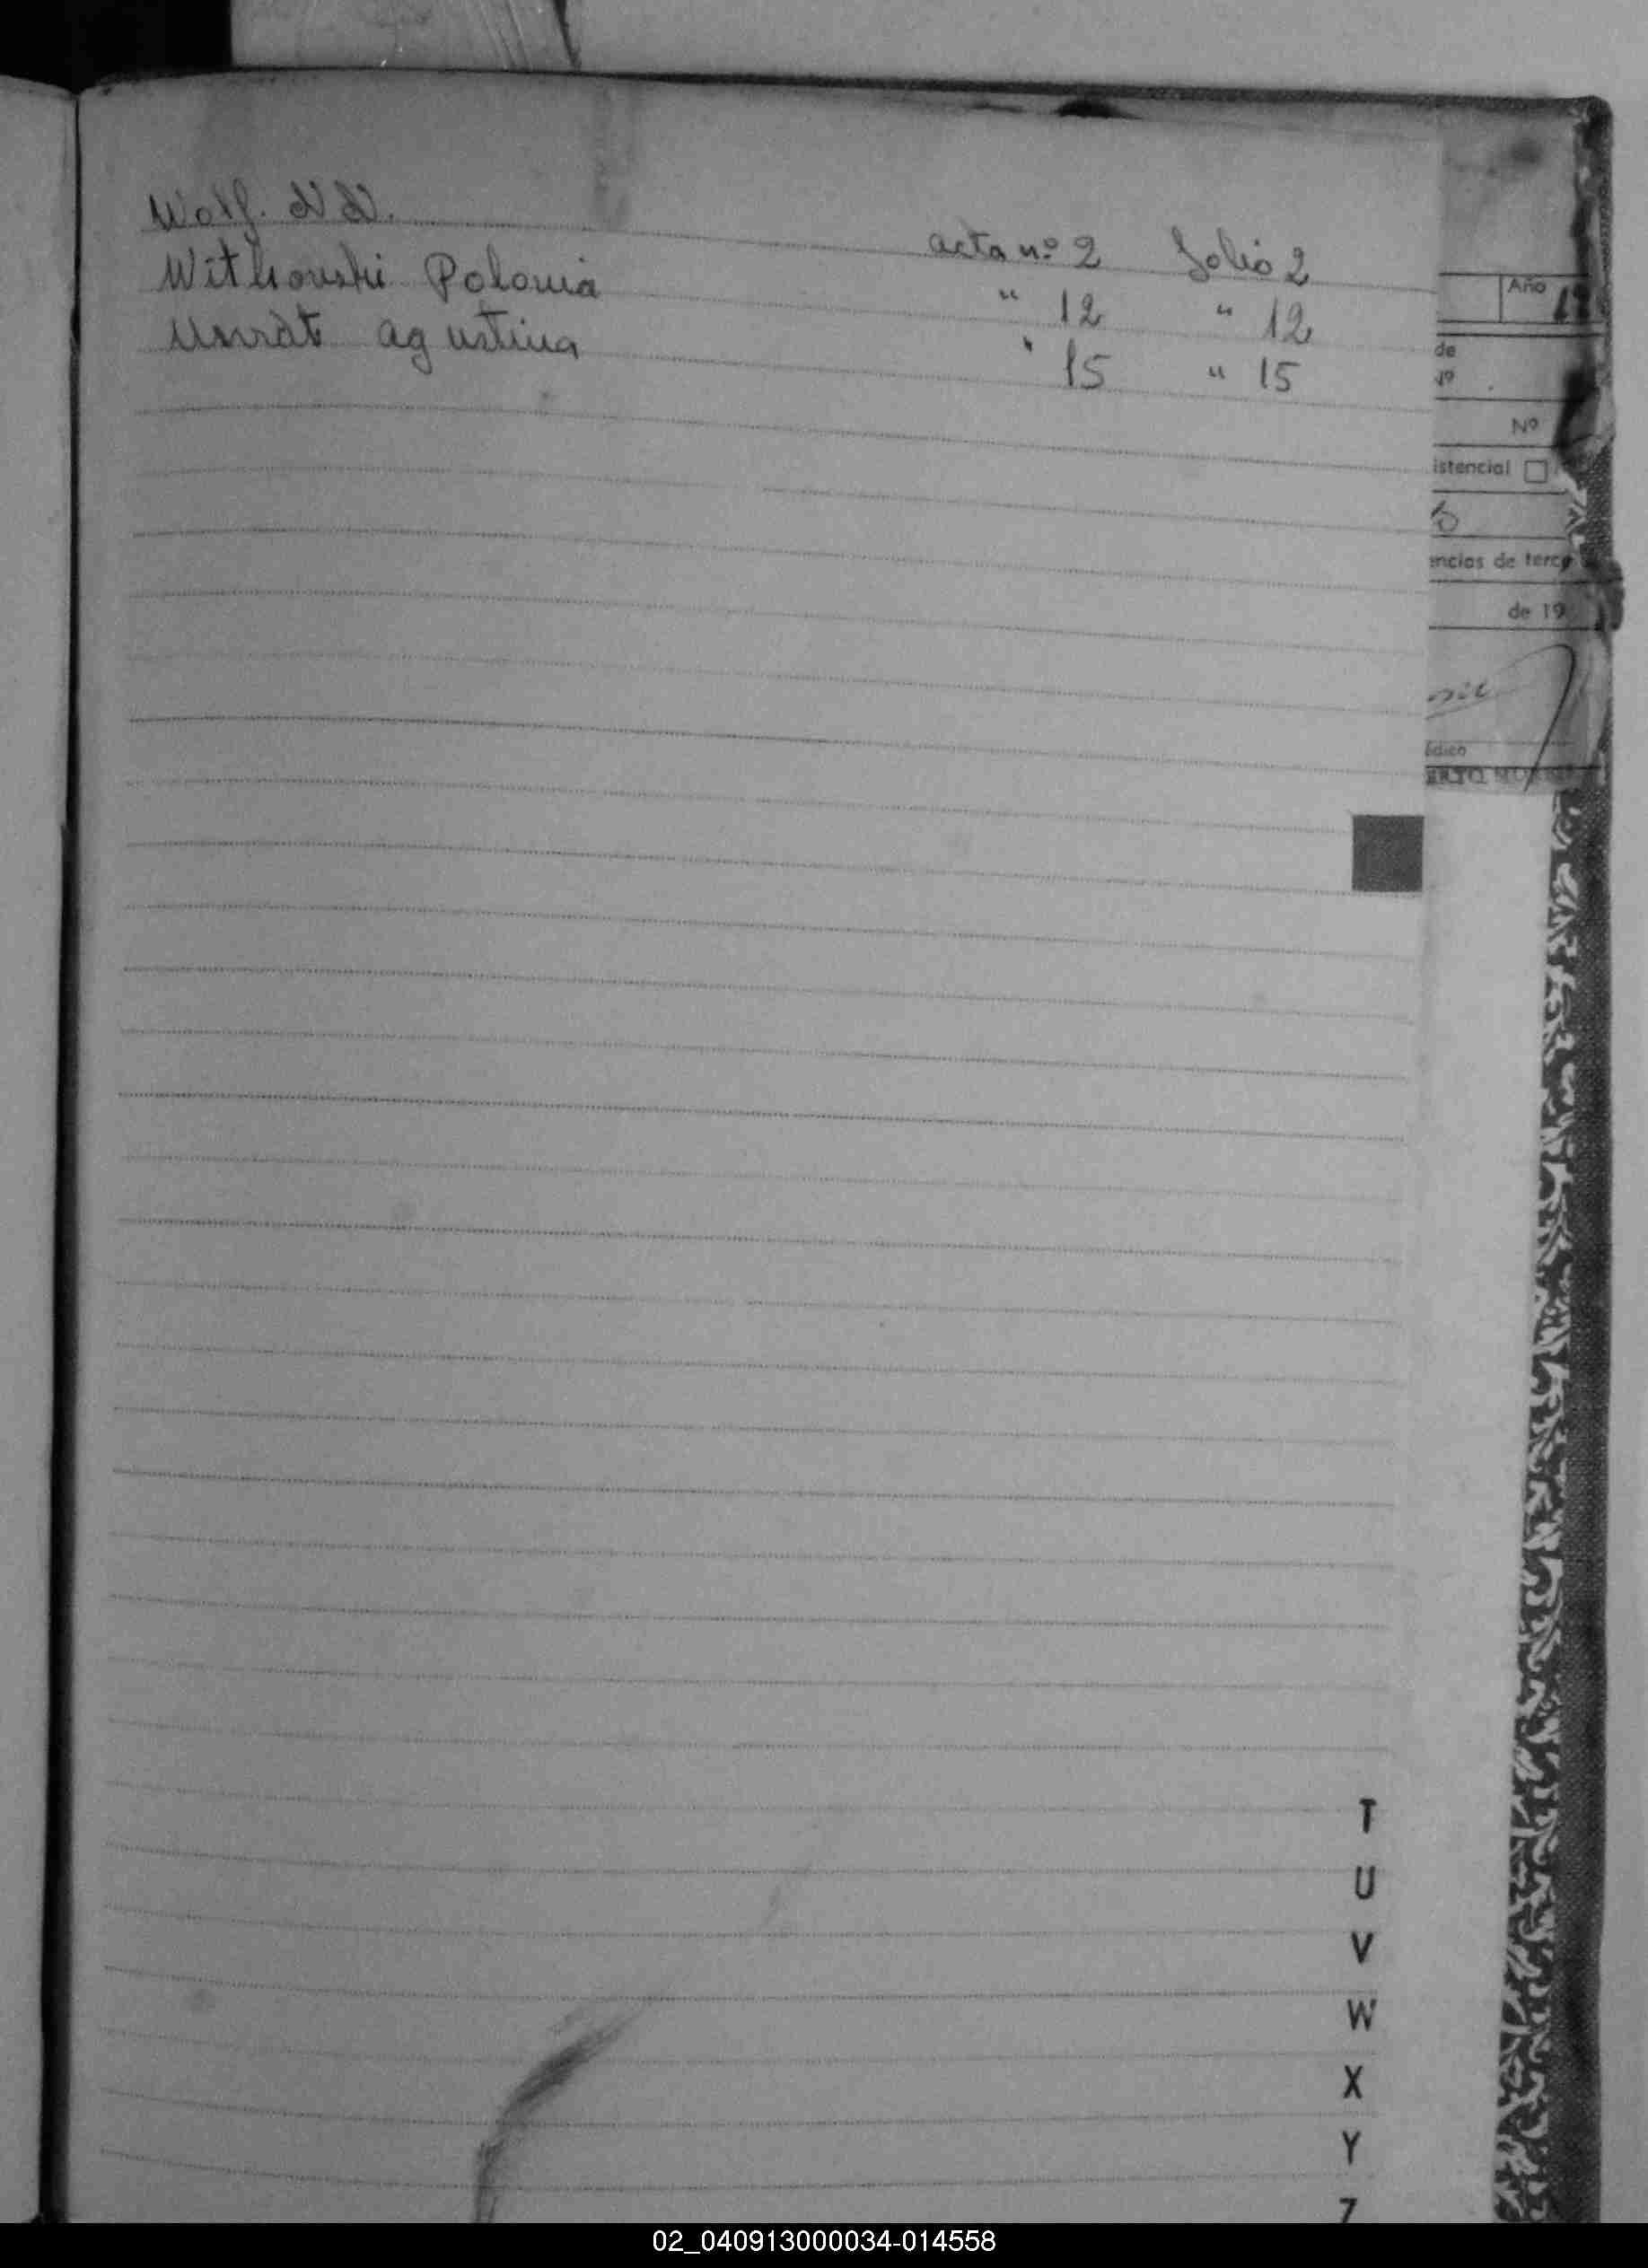 Wolf. N N. acta nº 2 folio 2
Withouski Polonia " 12 " 12
agustina " 15 " 15
Año
de
Nº
Nº
istencial
encias de terce
de 19
édico
T
U
V
W
X
Y
Z
02_040913000034-014558